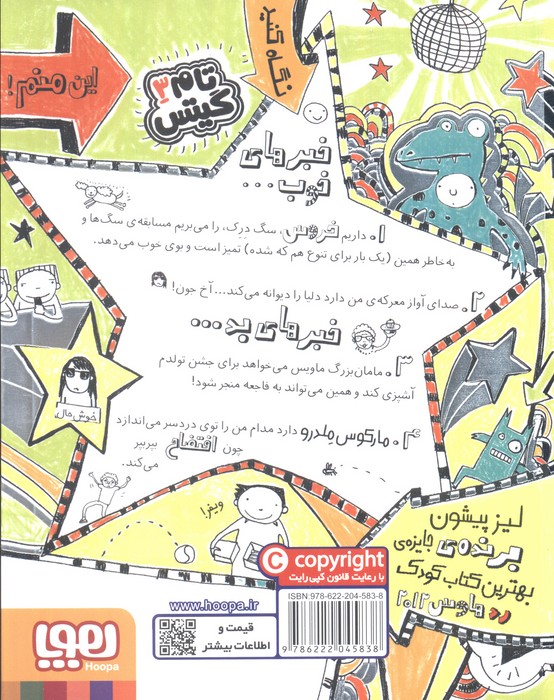 این منم!
نگاه کنید
تام ۲
گیتس
خبرهای
خوب...
۱. داریم خروس، سگ دِرِک، را می‌بریم مسابقه‌ی سگ‌ها و
به خاطر همین (یک بار برای تنوع هم که شده) تمیز است و بوی خوب می‌دهد.
۲. صدای آواز معرکه‌ی من دارد دنیا را دیوانه می‌کند... آخ جون!
خبرهای بد...
۳. مامان‌بزرگ ماویس می‌خواهد برای جشن تولدم
آشپزی کند و همین می‌تواند به فاجعه منجر شود!
۴. مارکوس مِلدرو دارد مدام من را توی دردسر می‌اندازد
چون افتضاح بیربیر
می‌کند.
خوش‌حال
ویغ!
لیز پیشون
برنده‌ی جایزه‌ی
بهترین کتاب کودک
رد هاوس ۲۰۱۲
C copyright
با رعایت قانون کپی رایت
ISBN: 978-622-204-583-8
9 786222 045838
www.hoopa.ir
قیمت و
اطلاعات بیشتر
هوپا
Hoopa